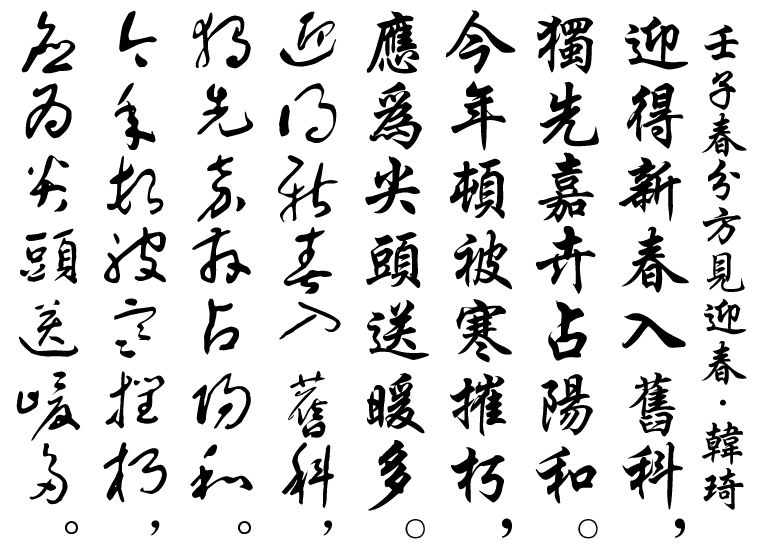 壬子春分方見迎春・韓琦
迎得新春入舊科，
獨先嘉卉占陽和。
今年頓被寒摧朽，
應爲尖頭送暖多。
迎得新春入舊科，
獨先嘉卉占陽和。
今年頓被寒摧朽，
應爲尖頭送暖多。